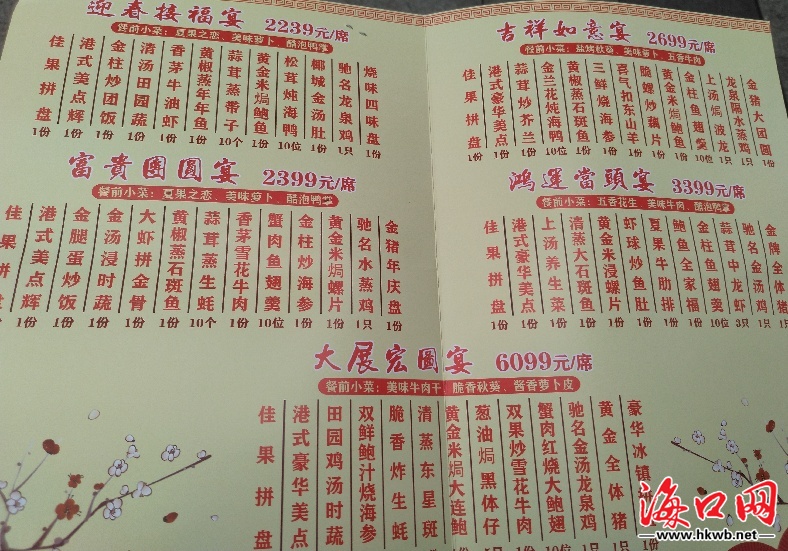 迎春接福宴 2239元/席
餐前小菜：夏果之恋、美味萝卜、酷泡鸭掌
佳果拼盘 1份
港式美点辉 1份
金柱炒团饭 1份
清汤田园蔬 1份
香茅牛油虾 1份
黄椒蒸年年鱼 1份
蒜茸蒸带子 10个
黄金米焗鲍鱼 10位
松茸炖海鸭 10位
椰城金汤肚 1份
驰名龙泉鸡 1只
烧味四味盘 1份
富貴團圓宴 2399元/席
餐前小菜：夏果之恋、美味萝卜、酷泡鸭掌
佳果拼盘 1份
港式美点辉 1份
金腿蛋炒饭 1份
金汤浸时蔬 1份
大虾拼金骨 1份
黄椒蒸石斑鱼 1份
蒜茸蒸生蚝 10个
香茅雪花牛肉 1份
蟹肉鱼翅羹 10位
金柱炒海参 1份
黄金米焗螺片 1份
驰名水蒸鸡 1只
金猪年庆盘 1份
吉祥如意宴 2699元/席
餐前小菜：盐烤秋葵、美味萝卜、五香牛肉
佳果拼盘 1份
港式豪华美点 1份
蒜茸炒芥兰 1份
金兰花炖海鸭 10位
黄椒蒸石斑鱼 1份
三鲜烧海参 1份
喜气扣东山羊 1份
脆螺炒藕片 1份
黄金米焗鲍鱼 10位
金柱鱼翅羹 10位
上汤焗波龙 1只
龙泉隔水蒸鸡 1只
金猪大团圆 1份
鸿運當頭宴 3399元/席
餐前小菜：五香花生、美味牛肉、酷泡鸭掌
佳果拼盘 1份
港式豪华美点 1份
上汤养生菜 1份
清蒸大石斑鱼 1份
黄金米浸螺片 1份
虾球炒鱼肚 1份
夏果牛肋排 1份
鲍鱼全家福 1份
金柱鱼翅羹 10位
蒜茸中龙虾 3只
驰名金汤鸡 1只
金牌全体猪 1份
大展宏圖宴 6099元/席
餐前小菜：美味牛肉干、脆香秋葵、酱香萝卜皮
佳果拼盘
港式豪华美点
田园鸡汤时蔬
双鲜鲍汁烧海参
脆香炸生蚝
清蒸东星斑
黄金米焗大连鲍
葱油焗黑体仔
双果炒雪花牛肉
蟹肉红烧大鲍翅
驰名金汤龙泉鸡
黄金全体猪
豪华冰镇
海口网
www.hkwb.net